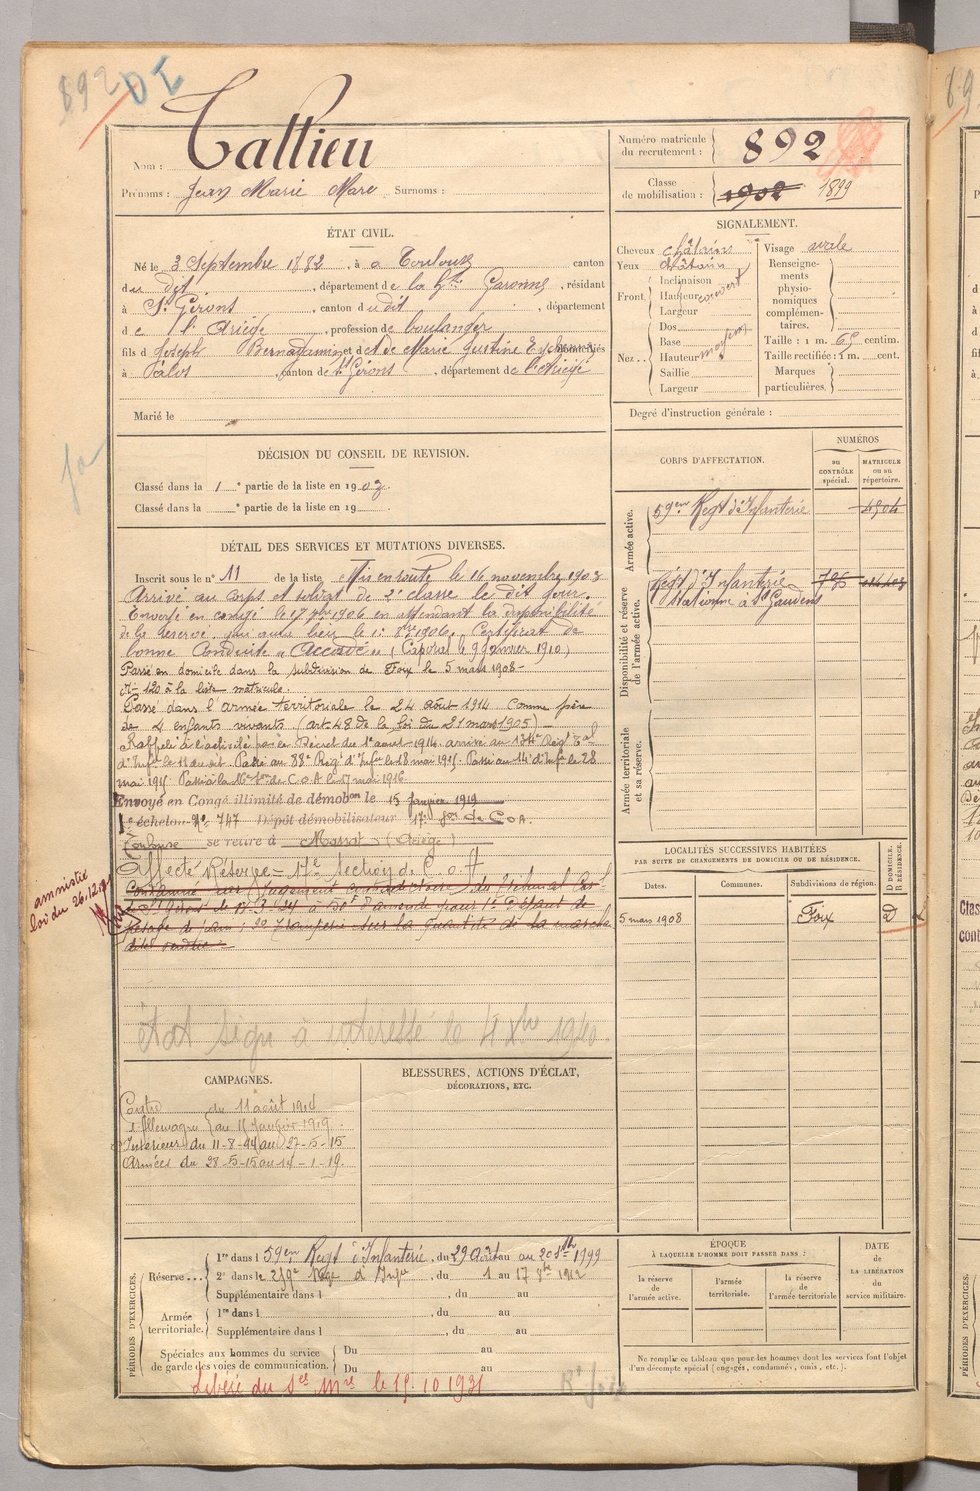 892 DI
Nom : Tallieu
Prénoms : Jean Marie Marc Surnoms :
Numéro matricule du recrutement : 892
Classe de mobilisation : 1902 1899
ÉTAT CIVIL.
Né le 3 Septembre 1882, à a Toulouse canton
du dit, département de la Hte Garonne, résidant
à St Girons, canton du dit, département
de l'Ariège, profession de boulanger
fils de Joseph et de Marie Justine domiciliés
à canton de St Girons, département de l'Ariège
Marié le
SIGNALEMENT.
Cheveux châtains
Yeux châtain
Front. Inclinaison
Hauteur couvert
Largeur
Nez.. Dos
Base
Hauteur moyen
Saillie
Largeur
Visage ovale
Renseignements physionomiques complémentaires.
Taille : 1 m. 65 centim.
Taille rectifiée : 1 m. cent.
Marques particulières.
Degré d'instruction générale :
DÉCISION DU CONSEIL DE REVISION.
Classé dans la 1 e partie de la liste en 1903.
Classé dans la e partie de la liste en 19
CORPS D'AFFECTATION.
NUMÉROS
au CONTRÔLE spécial.
MATRICULE ou au répertoire.
Armée active.
59em Regt d'Infanterie 4904
Disponibilité et réserve de l'armée active.
Régt d'Infanterie
Stationné à St Gaudens
Armée territoriale et sa réserve.
DÉTAIL DES SERVICES ET MUTATIONS DIVERSES.
Inscrit sous le n° 11 de la liste Mis en route le 16 novembre 1903
Arrivé au corps et soldat de 2e classe le dit jour.
Envoyé en congé le 17 7bre 1906 en attendant la disponibilité
de la réserve qui aura lieu le 1er 8bre 1906. Certificat de
bonne Conduite « Accordé » (Caporal le 9 Janvier 1910)
Passé en domicile dans la subdivision de Foix le 5 mars 1908 -
N° 120 à la liste matricule.
Passé dans l'armée territoriale le 24 août 1914 comme père
de 4 enfants vivants (art 48 de la loi du 21 mars 1905) -
Rappelé à l'activité par le Décret du 1er août 1914. arrivé au 134e Régt Tal
d'Infie le 11 au dit. Passé au 88e Régt d'Infie le 18 mai 1915. Passé au 14e d'Infie le 28
mai 1915. Passé à la 16e Son de C.O.A le 17 mai 1916.
Envoyé en Congé illimité de démobon le 15 Janvier 1919
1er échelon N° 747 Dépôt démobilisateur 17e Son de C.O.A.
Toulouse se retire à Massat (Ariège)
Affecté Réserve = 17e Section de C.O.A
Condamné par Jugement contradictoire du Tribunal Corl
de St Girons du 17-3-24 à 50f d'amende pour 1° Défaut de
pesage de pain ; 2° Tromperie sur la quantité de la marchandise vendue =
amnistié
loi du 26.12.31
État signé à intéressé le 4 Xbre 1940
LOCALITÉS SUCCESSIVES HABITÉES
PAR SUITE DE CHANGEMENTS DE DOMICILE OU DE RÉSIDENCE.
Dates. Communes. Subdivisions de région. D DOMICILE. R RÉSIDENCE.
5 mars 1908 Foix D
CAMPAGNES.
Contre du 11 août 1914
l'Allemagne au 15 Janvier 1919.
Intérieur du 11-8-14 au 27-5-15
Armées du 28-5-15 au 14-1-19.
BLESSURES, ACTIONS D'ÉCLAT,
DÉCORATIONS, ETC.
PÉRIODES D'EXERCICES.
Réserve... 1re dans le 59em Regt d'Infanterie, du 29 Août au
2e dans le 259e Régt d'Infie, du 1 au 17 8bre 1912
Supplémentaire dans l , du au
Armée territoriale. 1re dans l du au
Supplémentaire dans l , du au
Spéciales aux hommes du service de garde des voies de communication. Du au
Du au
Libéré du Sce Mre le 15.10 1931
ÉPOQUE
À LAQUELLE L'HOMME DOIT PASSER DANS :
la réserve de l'armée active.
l'armée territoriale.
la réserve de l'armée territoriale
DATE DE LA LIBÉRATION du service militaire.
Ne remplir ce tableau que pour les hommes dont les services font l'objet
d'un décompte spécial (engagés, condamnés, omis, etc.).